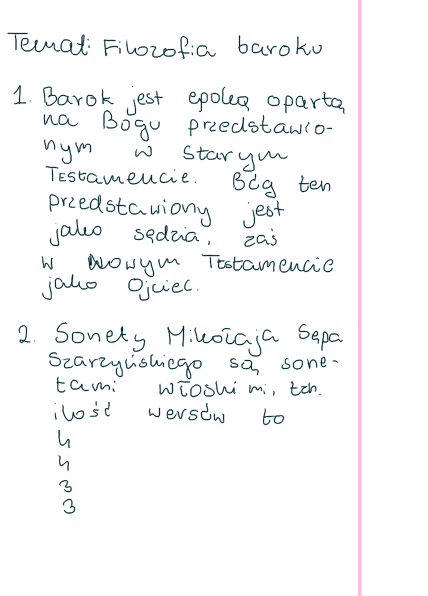 Temat: Filozofia baroku
1. Barok jest epoką opartą
na Bogu przedstawio-
nym w Starym
Testamencie. Bóg ten
przedstawiony jest
jako sędzia, zaś
w Nowym Testamencie
jako Ojciec.
2. Sonety Mikołaja Sępa
Szarzyńskiego są sone-
tami włoskimi, tzn.
ilość wersów to
4
4
3
3